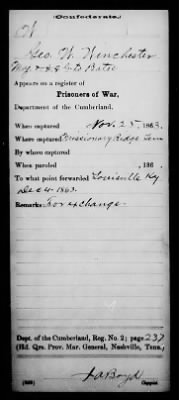 (Confederate.)
W
Geo. W. Winchester
Appears on a register of
Prisoners of War,
Department of the Cumberland.
When captured Nov. 25, 1863.
Where captured Missionary Ridge Tenn
By whom captured
When paroled , 186 .
To what point forwarded Louisville Ky
Dec 4 1863.
Remarks: For exchange
Dept. of the Cumberland, Reg. No. 2; page 237
(Hd. Qrs. Prov. Mar. General, Nashville, Tenn.)
Boyd
Copyist.